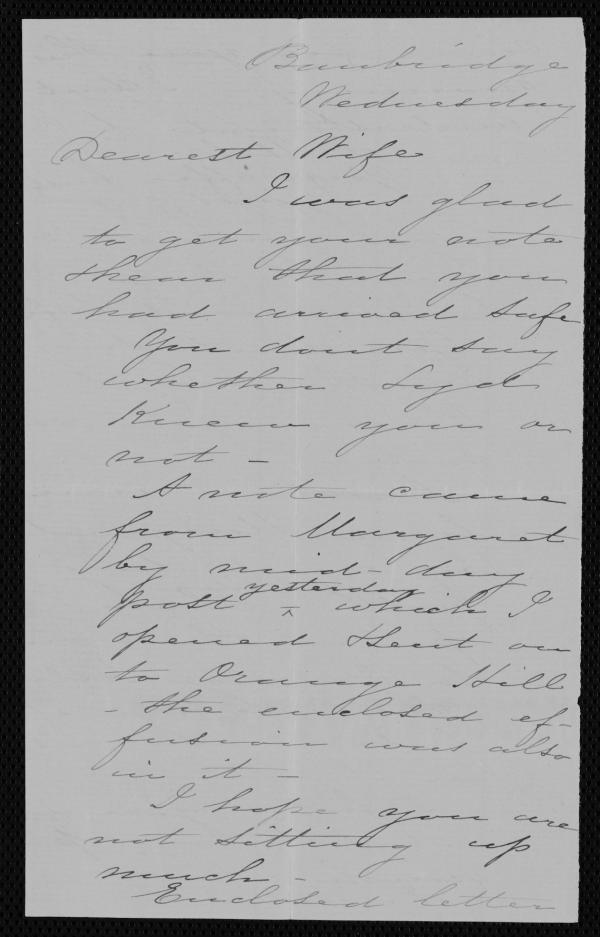 Banbridge
Wednesday
Dearest Wife
I was glad
to get your note
& hear that you
had arrived safe
You dont say
whether Syd
Knew you or
not -
A note came
from Margaret
by mid-day
post yesterday which I
opened & sent on
to Orange Hill
- the enclosed ef-
fusion was also
in it -
I hope you are
not sitting up
much -
Enclosed letter